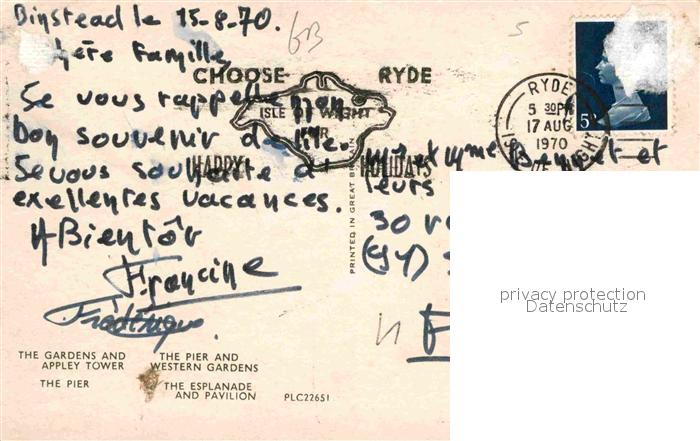 Binstead le 15-8-70.
chère Famille
Je vous rappelle mon
bon souvenir de l'île.
Je vous souhaite d'
exellentes vacances.
A Bientôt
Francine
Frédérique
6B
5
CHOOSE RYDE
ISLE OF WIGHT
FOR
HAPPY HOLIDAYS
RYDE
5 30PM
17 AUG
1970
ISLE OF WIGHT
5P
PRINTED IN GREAT BRITAIN
Mr et Mme et
leurs
30
THE GARDENS AND
APPLEY TOWER
THE PIER AND
WESTERN GARDENS
THE PIER
THE ESPLANADE
AND PAVILION
PLC22651
privacy protection
Datenschutz